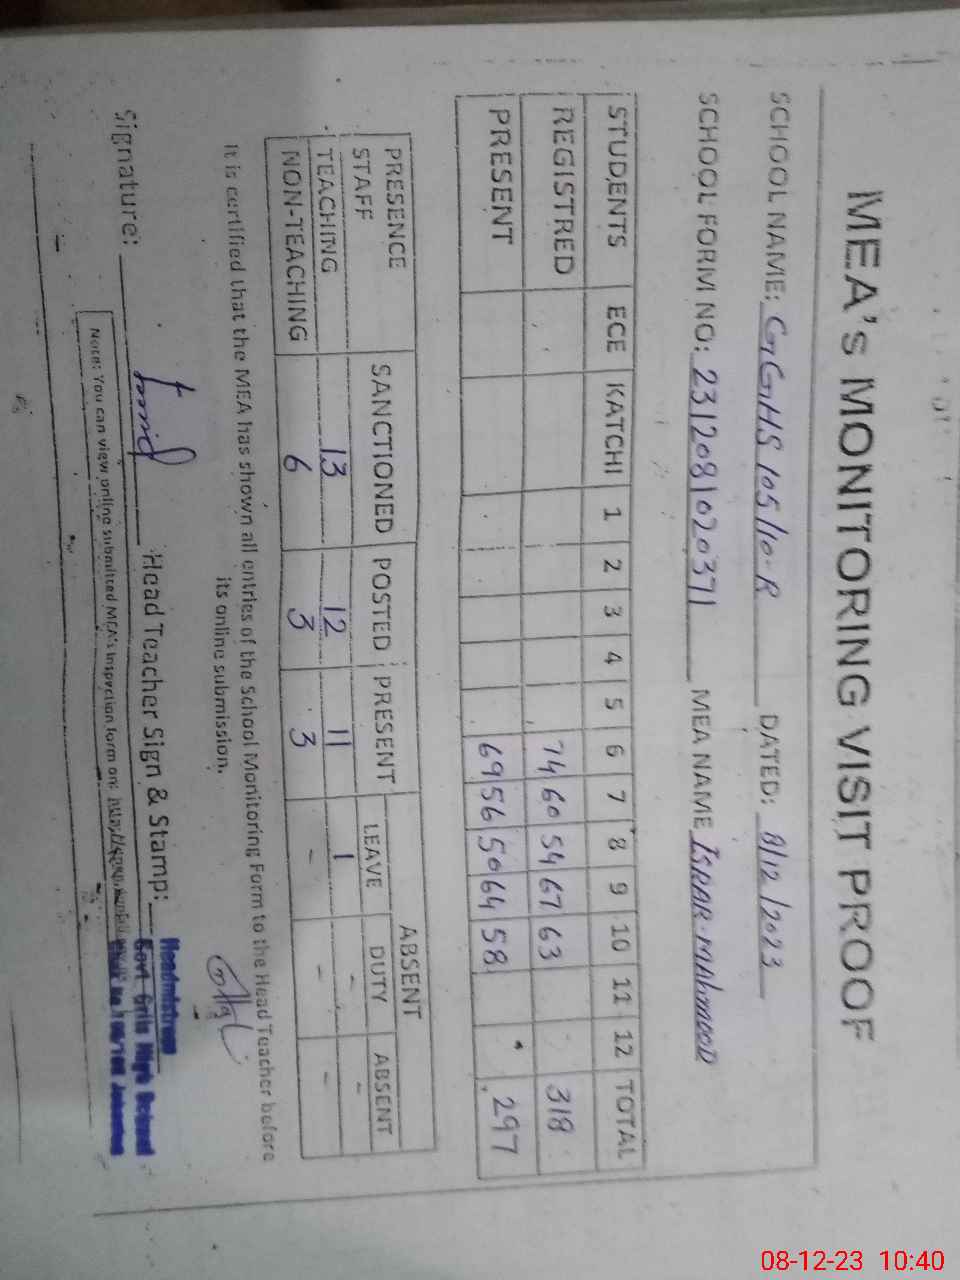 MEA's MONITORING VISIT PROOF
SCHOOL NAME: GGHS 105/10-R DATED: 8/12/2023
SCHOOL FORM NO: 231208102037 1 MEA NAME ISRAR MAHMOOD
STUDENTS ECE KATCHI 1 2 3 4 5 6 7 8 9 10 11 12 TOTAL
REGISTRED 74 60 54 67 63 318
PRESENT 69 56 50 64 58 297
PRESENCE STAFF SANCTIONED POSTED PRESENT ABSENT
LEAVE DUTY ABSENT
TEACHING 13 12 11 1 - -
NON-TEACHING 6 3 3 - - -
It is certified that the MEA has shown all entries of the School Monitoring Form to the Head Teacher before
its online submission.
Signature: Head Teacher Sign & Stamp:
Headmistress
Govt Grils High School
Note: You can view online submitted MEA's Inspection form on:
08-12-23 10:40